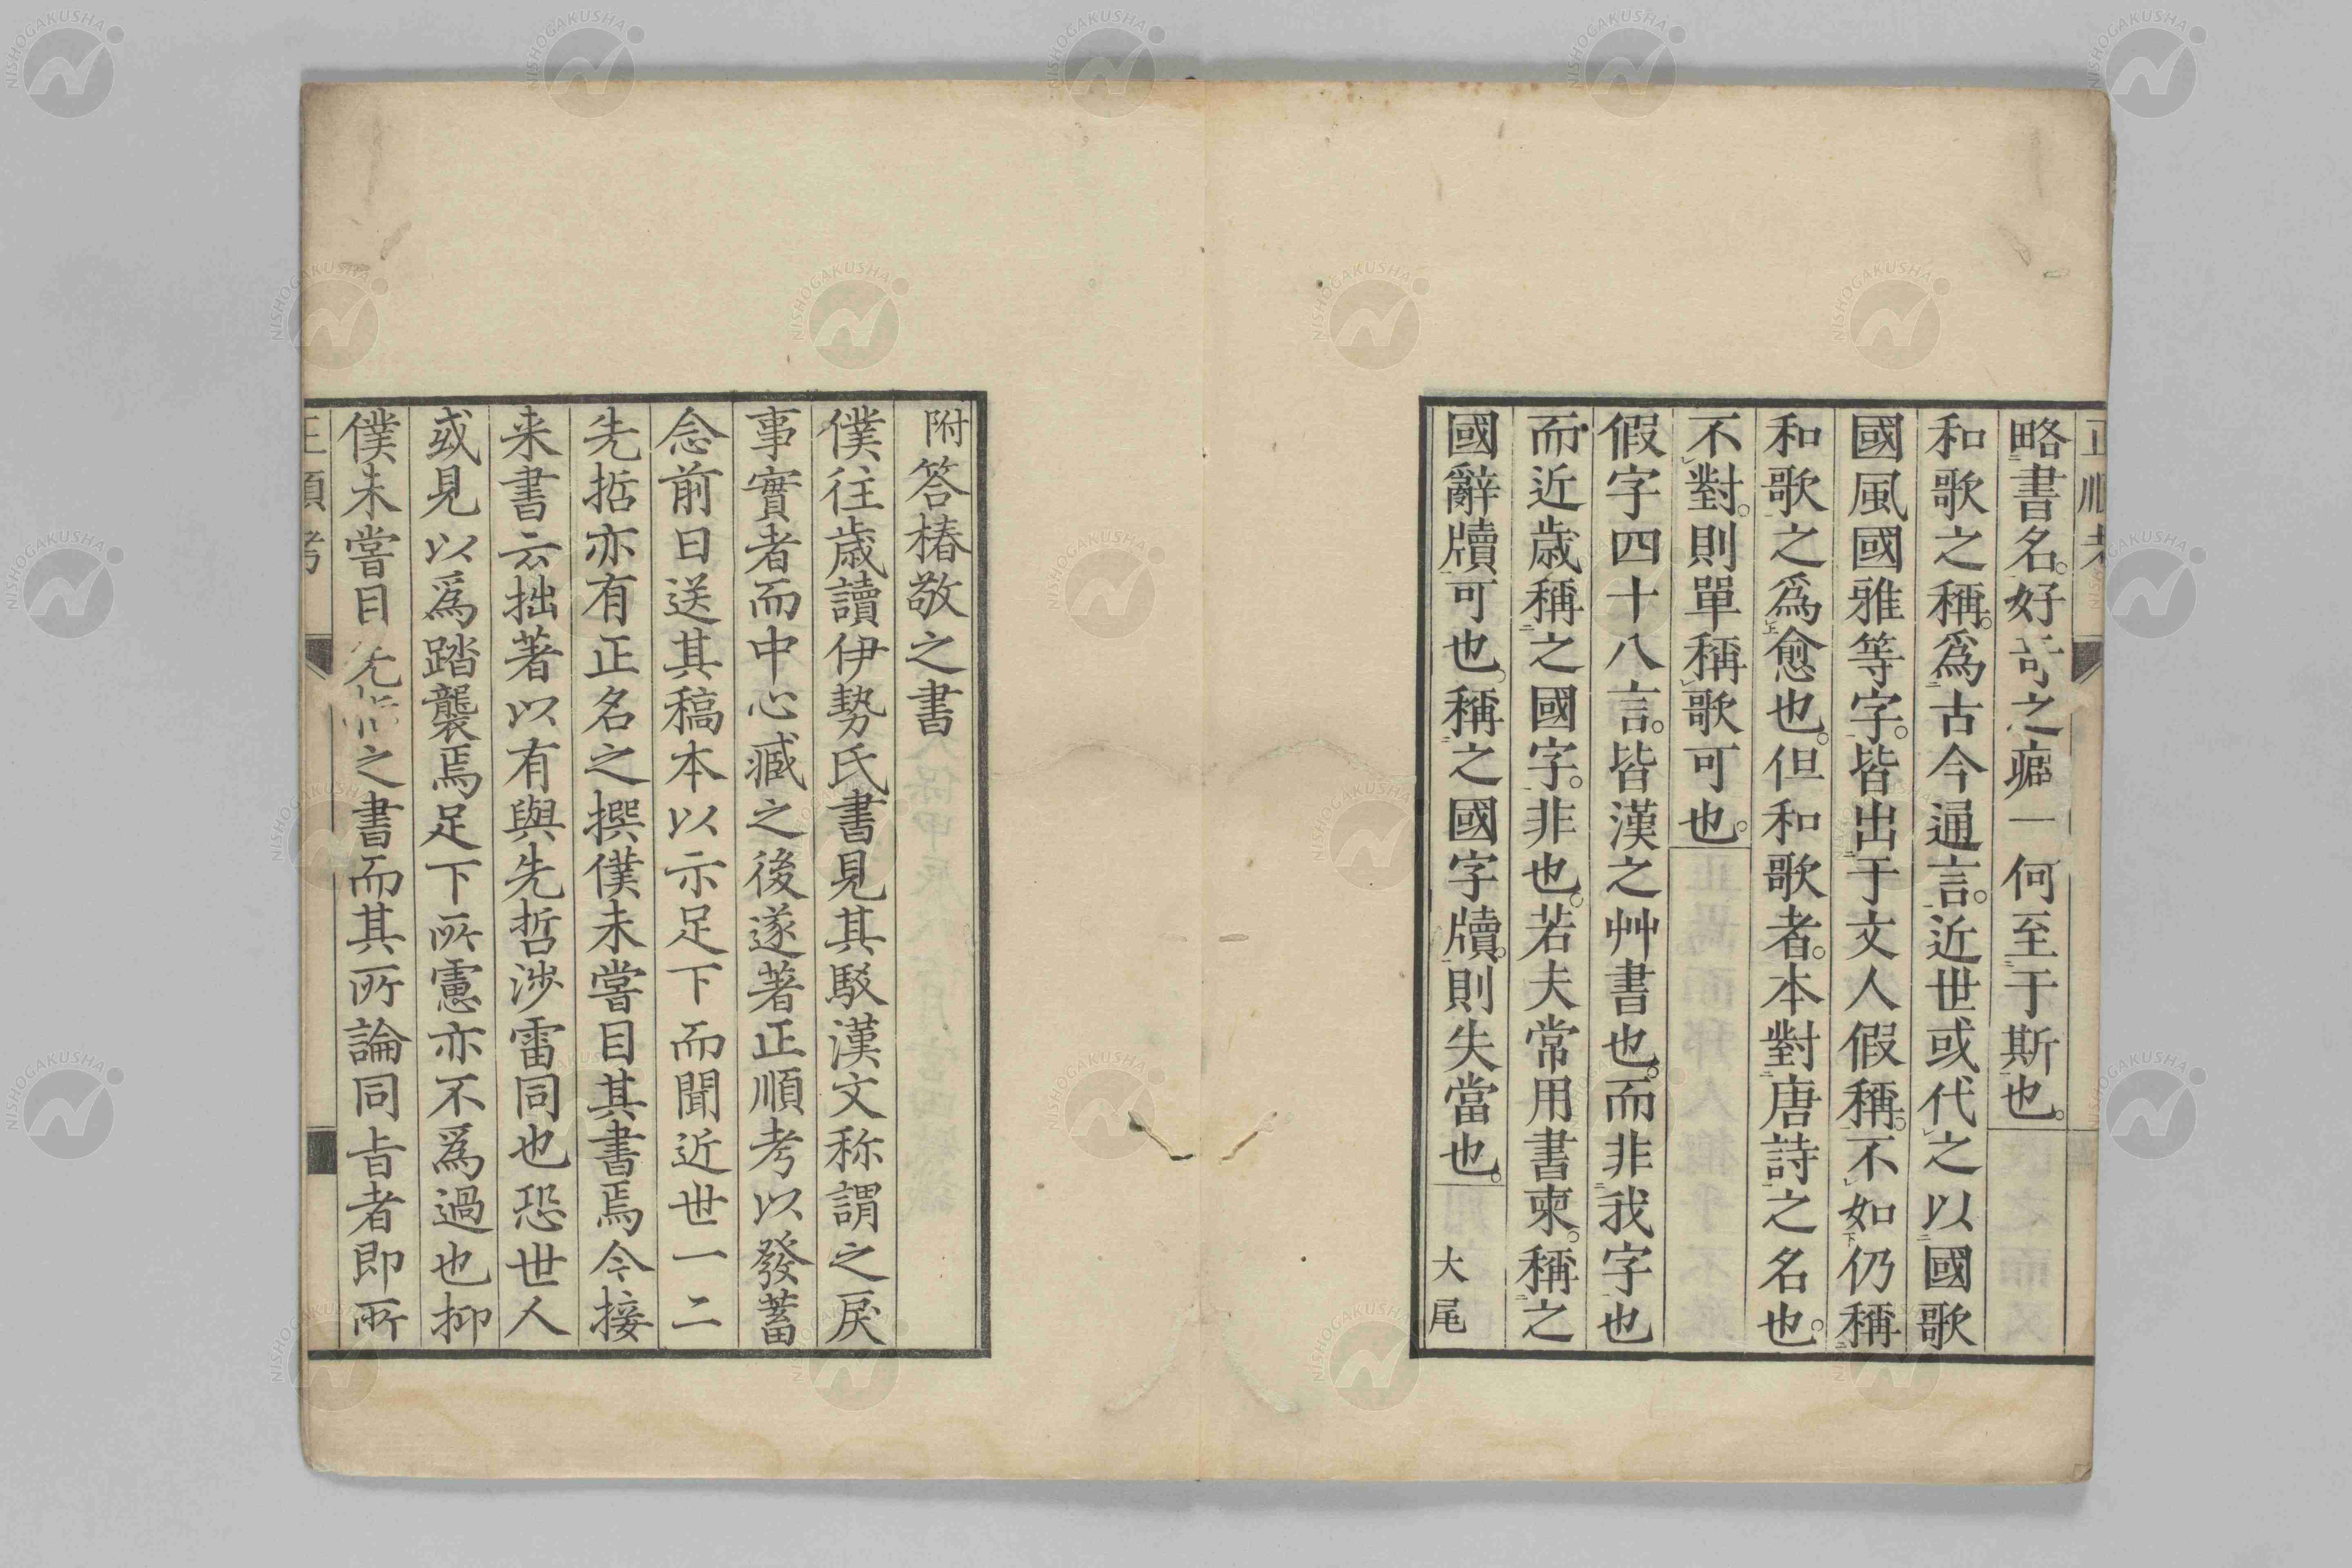 正順考
略書名。好奇之癖一何至于斯也。
和歌之稱。爲古今通言。近世或代之以國歌
國風國雅等字。皆出于文人假稱。不如仍稱
和歌之爲愈也。但和歌者。本對唐詩之名也。
不對。則單稱歌可也。
假字四十八言。皆漢之艸書也。而非我字也
而近歲稱之國字。非也。若夫常用書柬。稱之
國辭牘可也。稱之國字牘。則失當也。
大尾
附答椿敬之書
僕往歲讀伊勢氏書見其駁漢文称謂之戾
事實者而中心臧之後遂著正順考以發蓄
念前日送其稿本以示足下而聞近世一二
先哲亦有正名之撰僕未嘗目其書焉今接
来書云拙著以有與先哲涉雷同也恐世人
或見以爲踏襲焉足下所慮亦不爲過也抑
僕未嘗目先哲之書而其所論同旨者即所
正順考
NISHOGAKUSHA